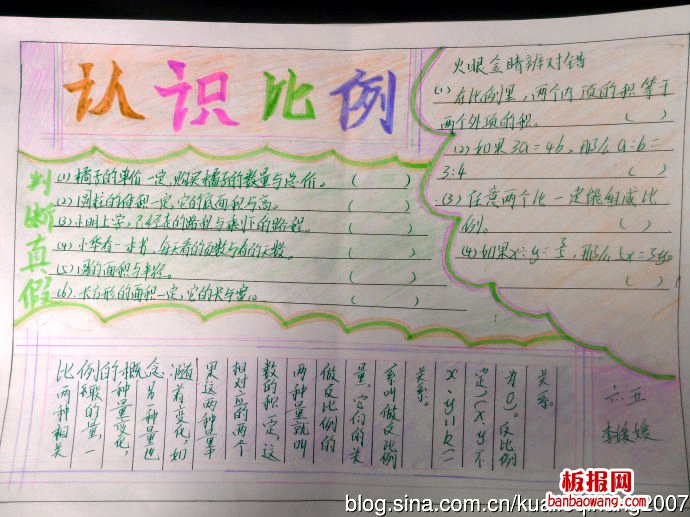 认识比例
火眼金睛辨对错
(1) 在比例里,两个内项的积等于
两个外项的积。 ( )
(2) 如果3a=4b,那么a:b=
3:4 ( )
(3) 任意两个比一定能组成比
例。 ( )
(4) 如果x÷y=3/5,那么5x=3y。
( )
判断真假
(1) 橘子的单价一定,购买橘子的数量与总价。 ( )
(2) 圆柱的体积一定,它的底面积与高。 ( )
(3) 小明上学,已经走的路程与剩下的路程。 ( )
(4) 小华看一本书,每天看的页数与看的天数。 ( )
(5) 圆的面积与半径。 ( )
(6) 长方形的面积一定,它的长与宽。 ( )
比例的概念
两种相关
联的量,一
种量变化,
另一种量也
随着变化,如
果这两种量中
相对应的两个
数的积一定,这
两种量就叫
做反比例的
量,它们的关
系叫做反比例
关系。
x·y=k(一
定)(x、y不
为0)。反比例
关系。
六五
李俊媛
板报网
banbaowang.com